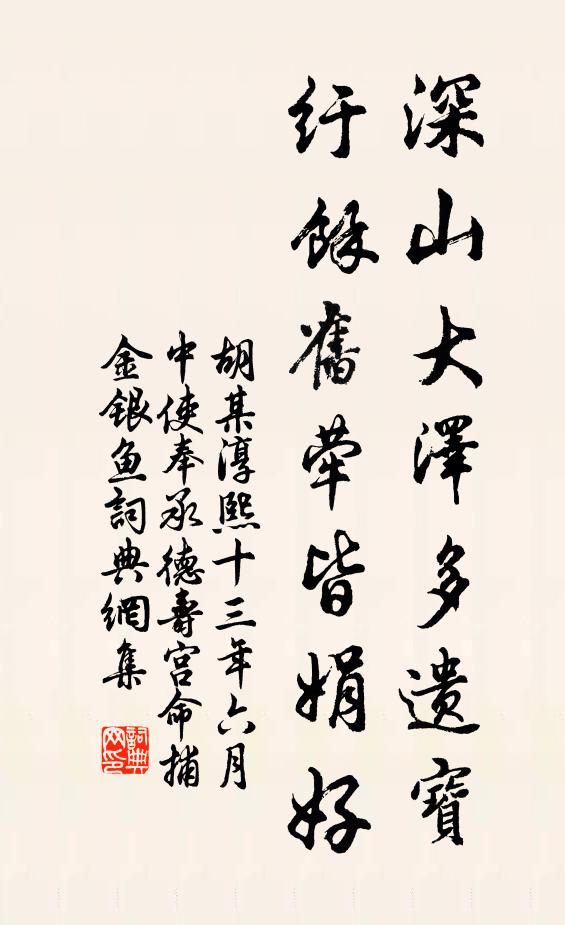 深山大澤多遺寶
紆餘舊荦皆娟好
胡某淳熙十三年六月
中使奉承德壽宫命捕
金銀魚詞典網集
詞典
网印